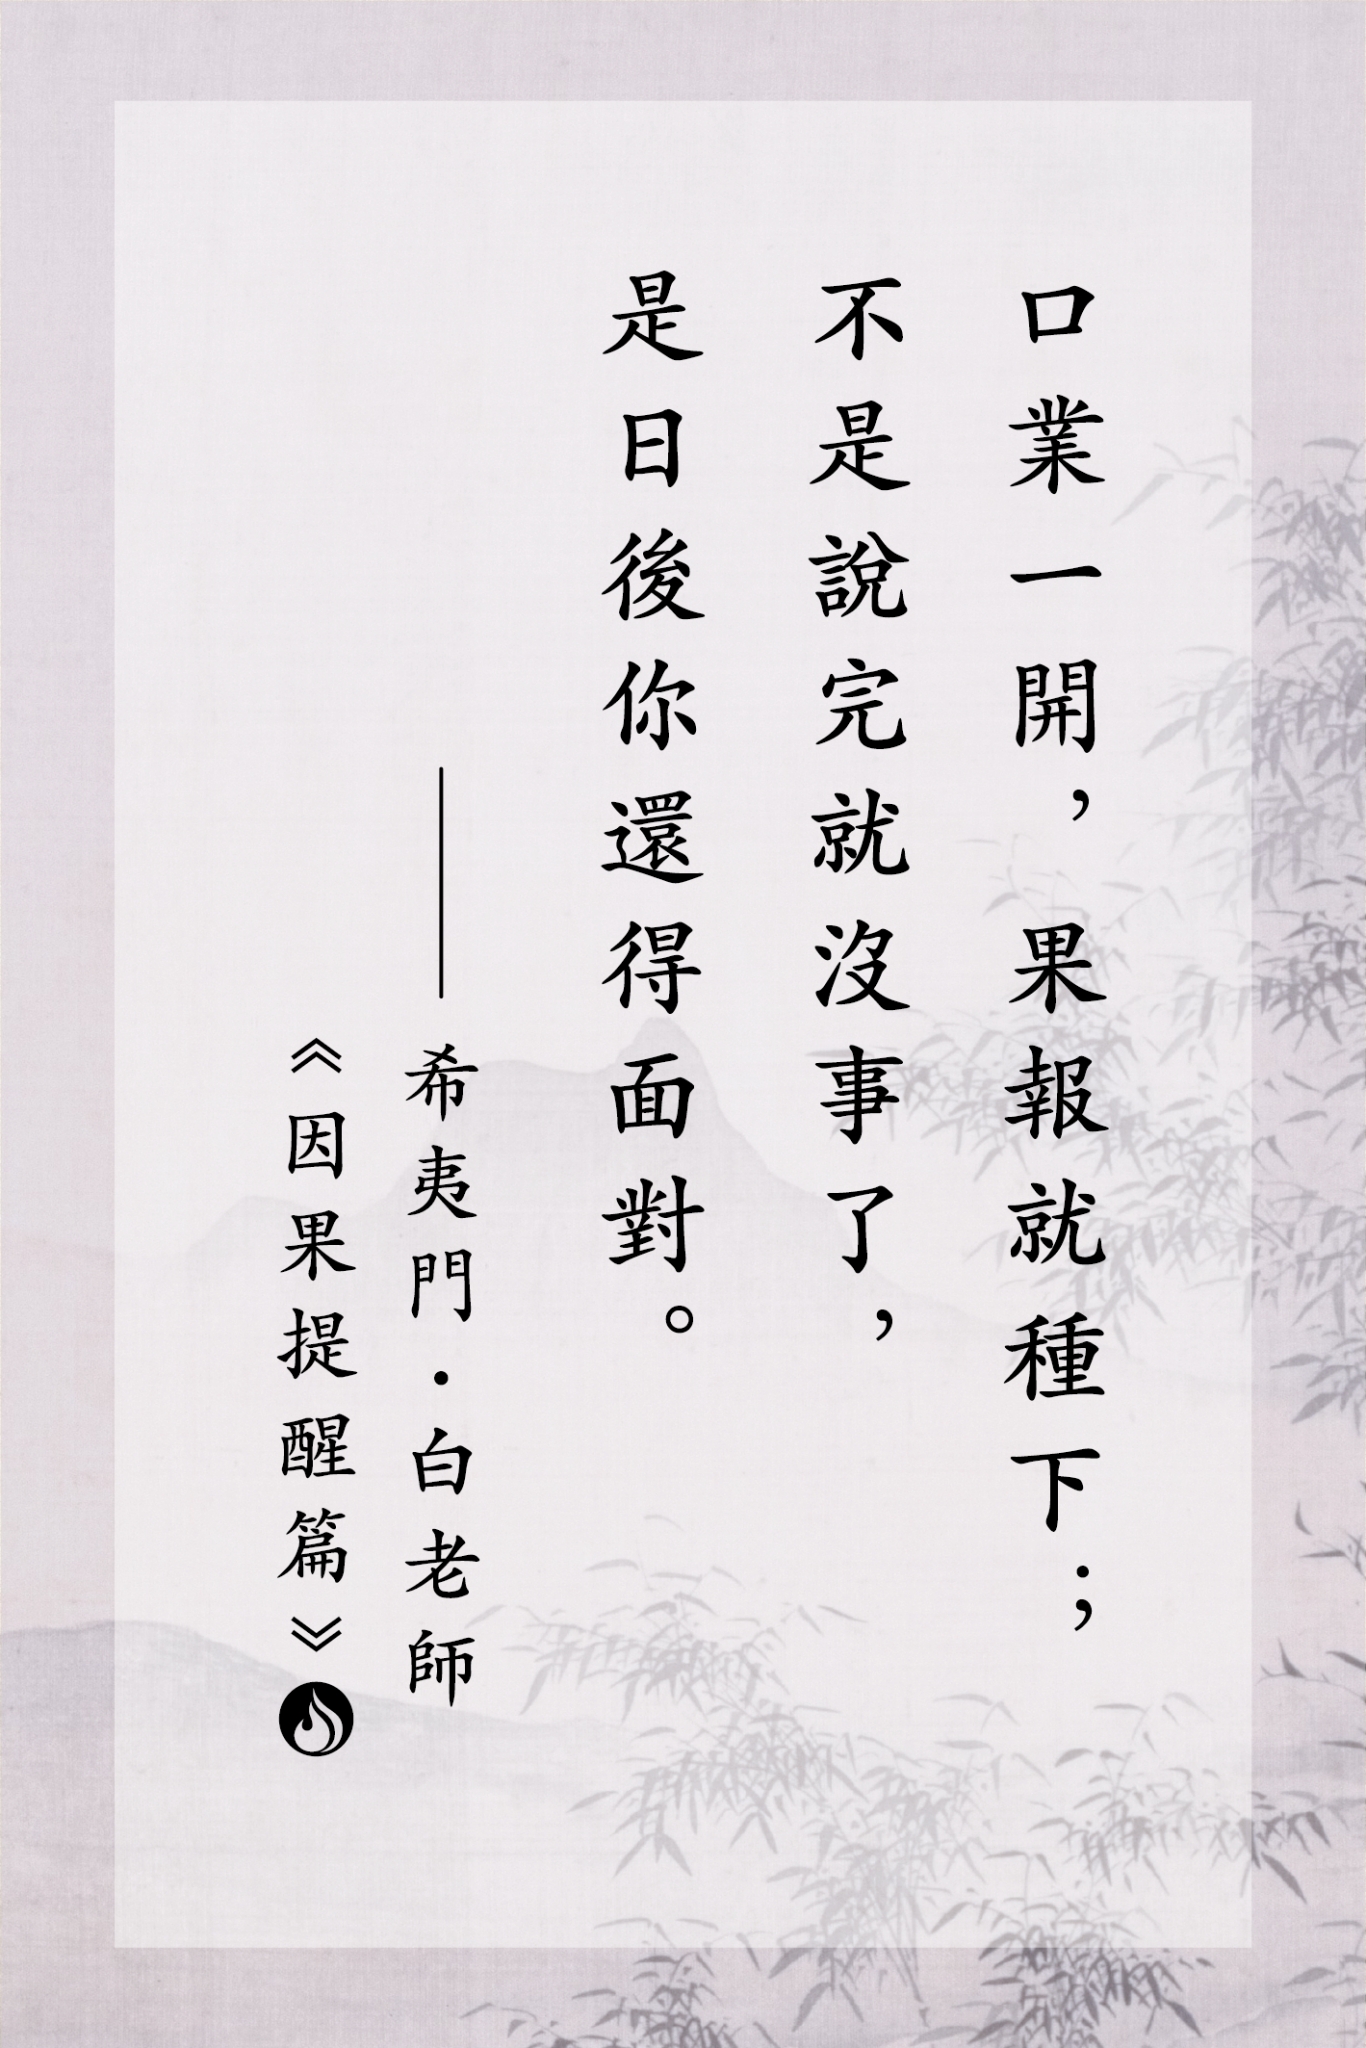 口業一開，果報就種下；
不是說完就沒事了，
是日後你還得面對。
——希夷門．白老師
《因果提醒篇》